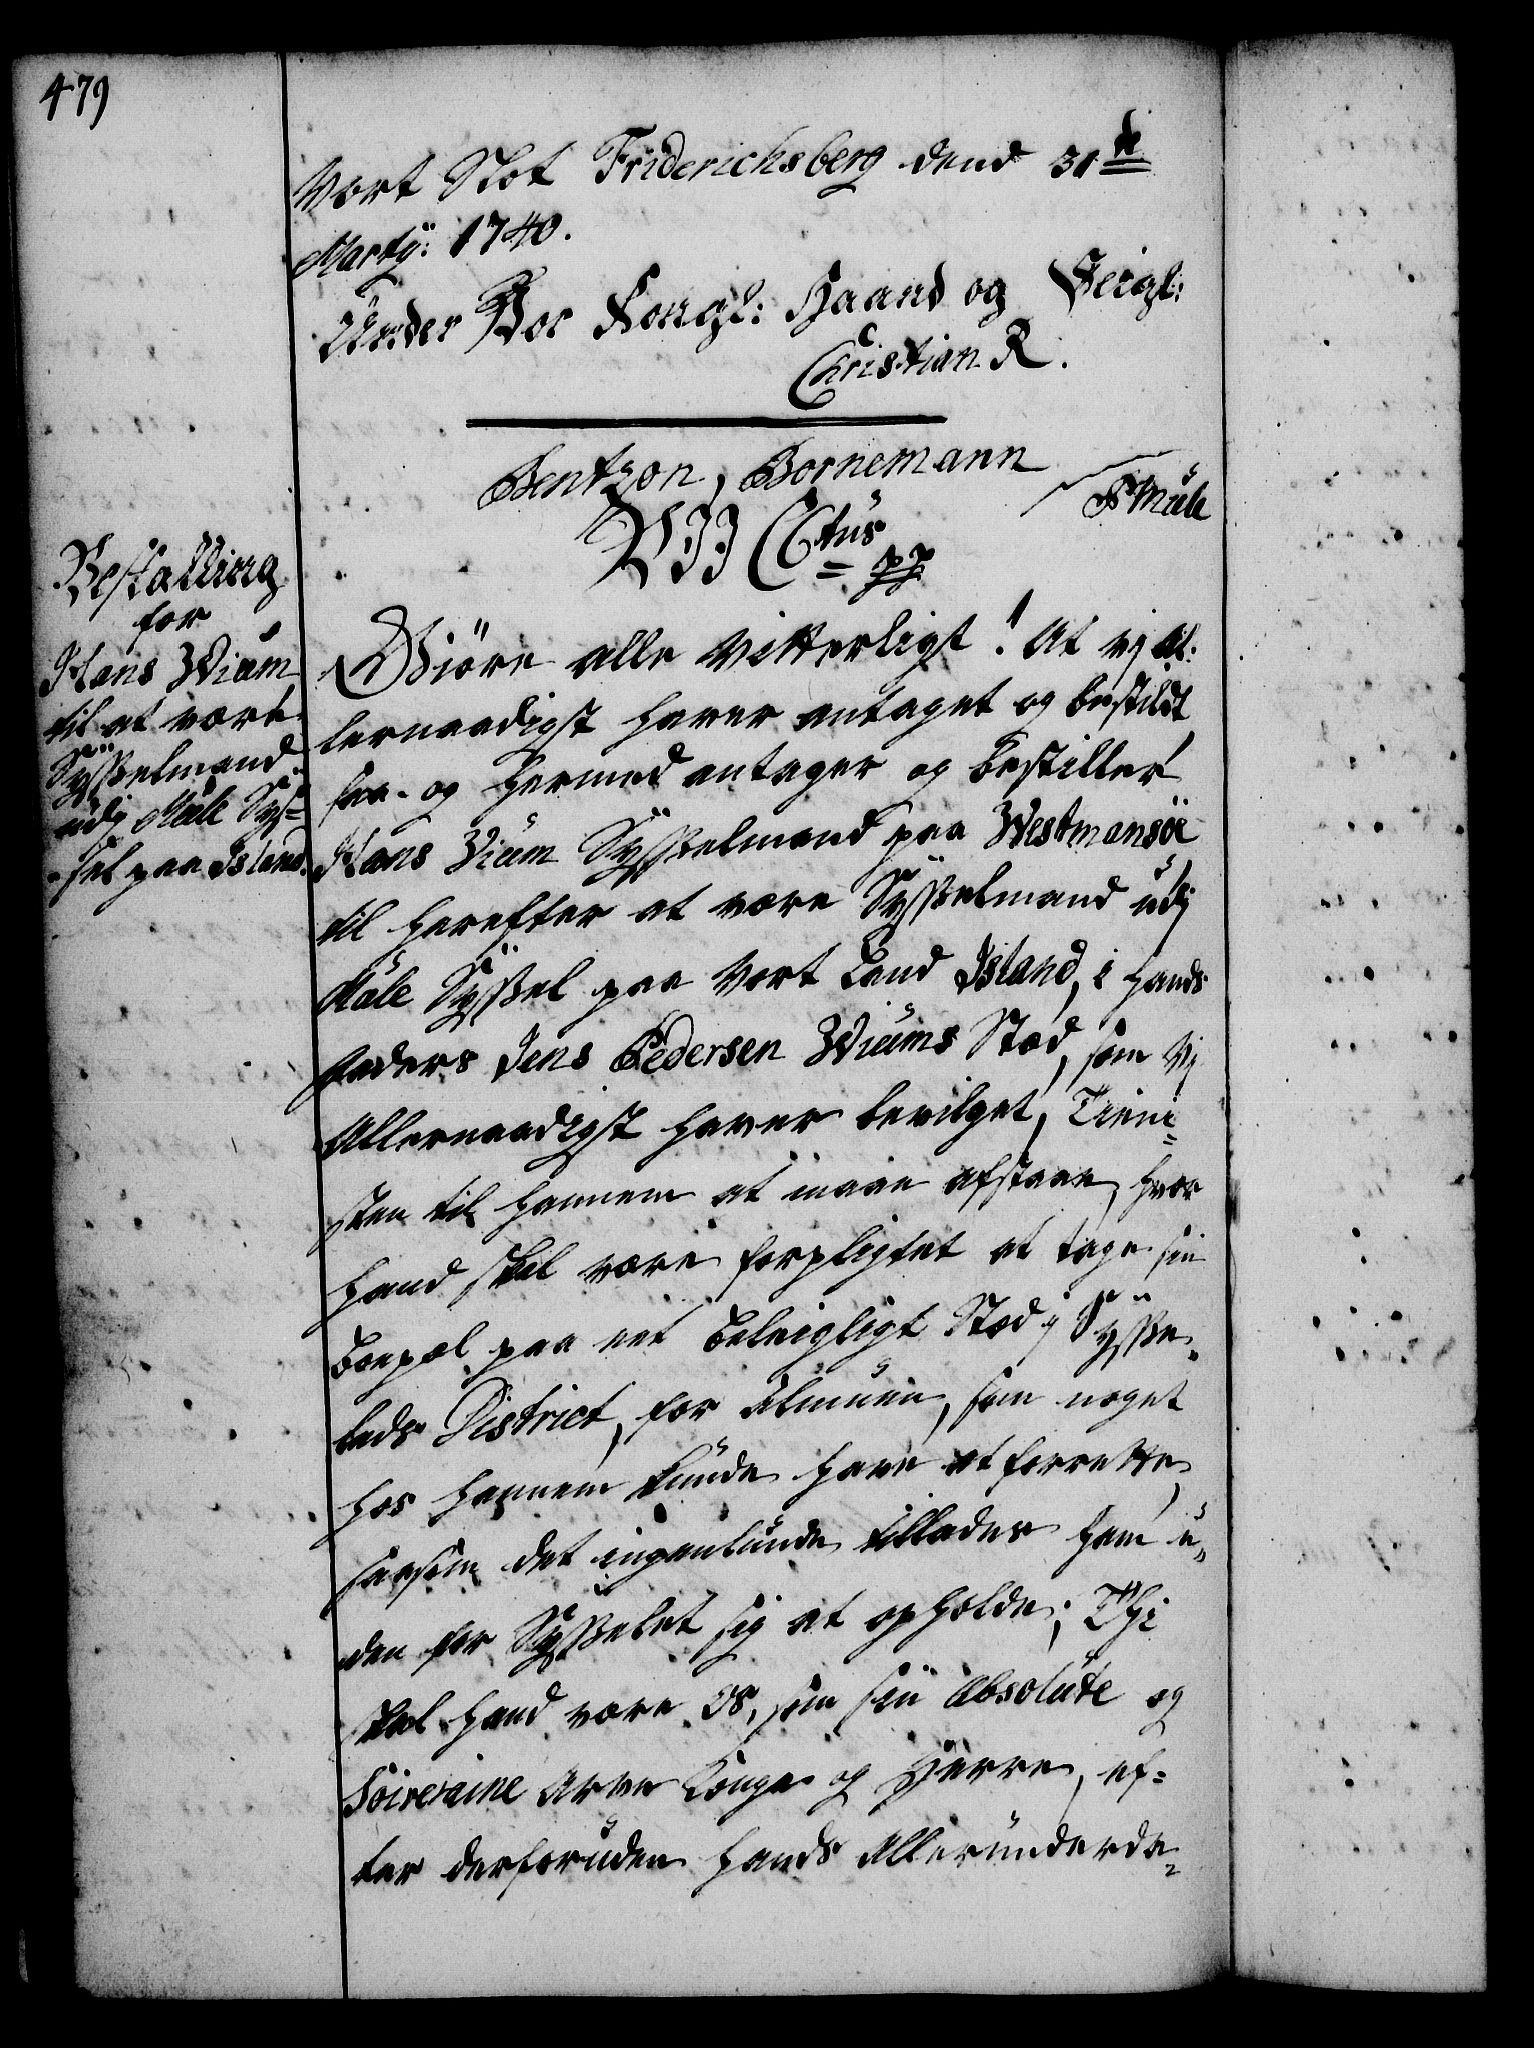 479
Vort Slot Friderichsberg dend 31te
Martij: 1740.
Under Vor Kongl: Haand og Seigl:
Christian R.
Bentzon, Bornemann
F Müle
Bestalling
for
Hans Wium
til at være
Sÿsselmand
udj Mule Sÿs-
sel paa Island.
VJJ CCtus pp
Giöre alle Vitterligt! At vj Al-
lernaadigst haver antaget og bestildt,
saa- og hermed antager og bestiller
Hans Wium Sÿsselmand paa Westmansöe
til herefter at være Sÿsselmand udj
Mule Sÿssel paa Vort Land Island, i hands
Faders Jens Pedersen Wiums Stæd, som Vj
Allernaadigst haver bevilget, Tieni-
sten til hannem at maae afstaae, hvor
hand skal være forpligtet at tage sin
Boepæl paa eet beleigligt Stæd j Sÿsse-
leds District, for Almuen, som noget
hos hannem kunde have at forrette,
saasom det ingenlunde tillades ham u-
den for Sÿsselet sig at opholde; Thi
skal hand være Os, som sin absolute og
Soiveraine Arve Konge og Herre, ef-
ter derforuden hands Allerunderda-